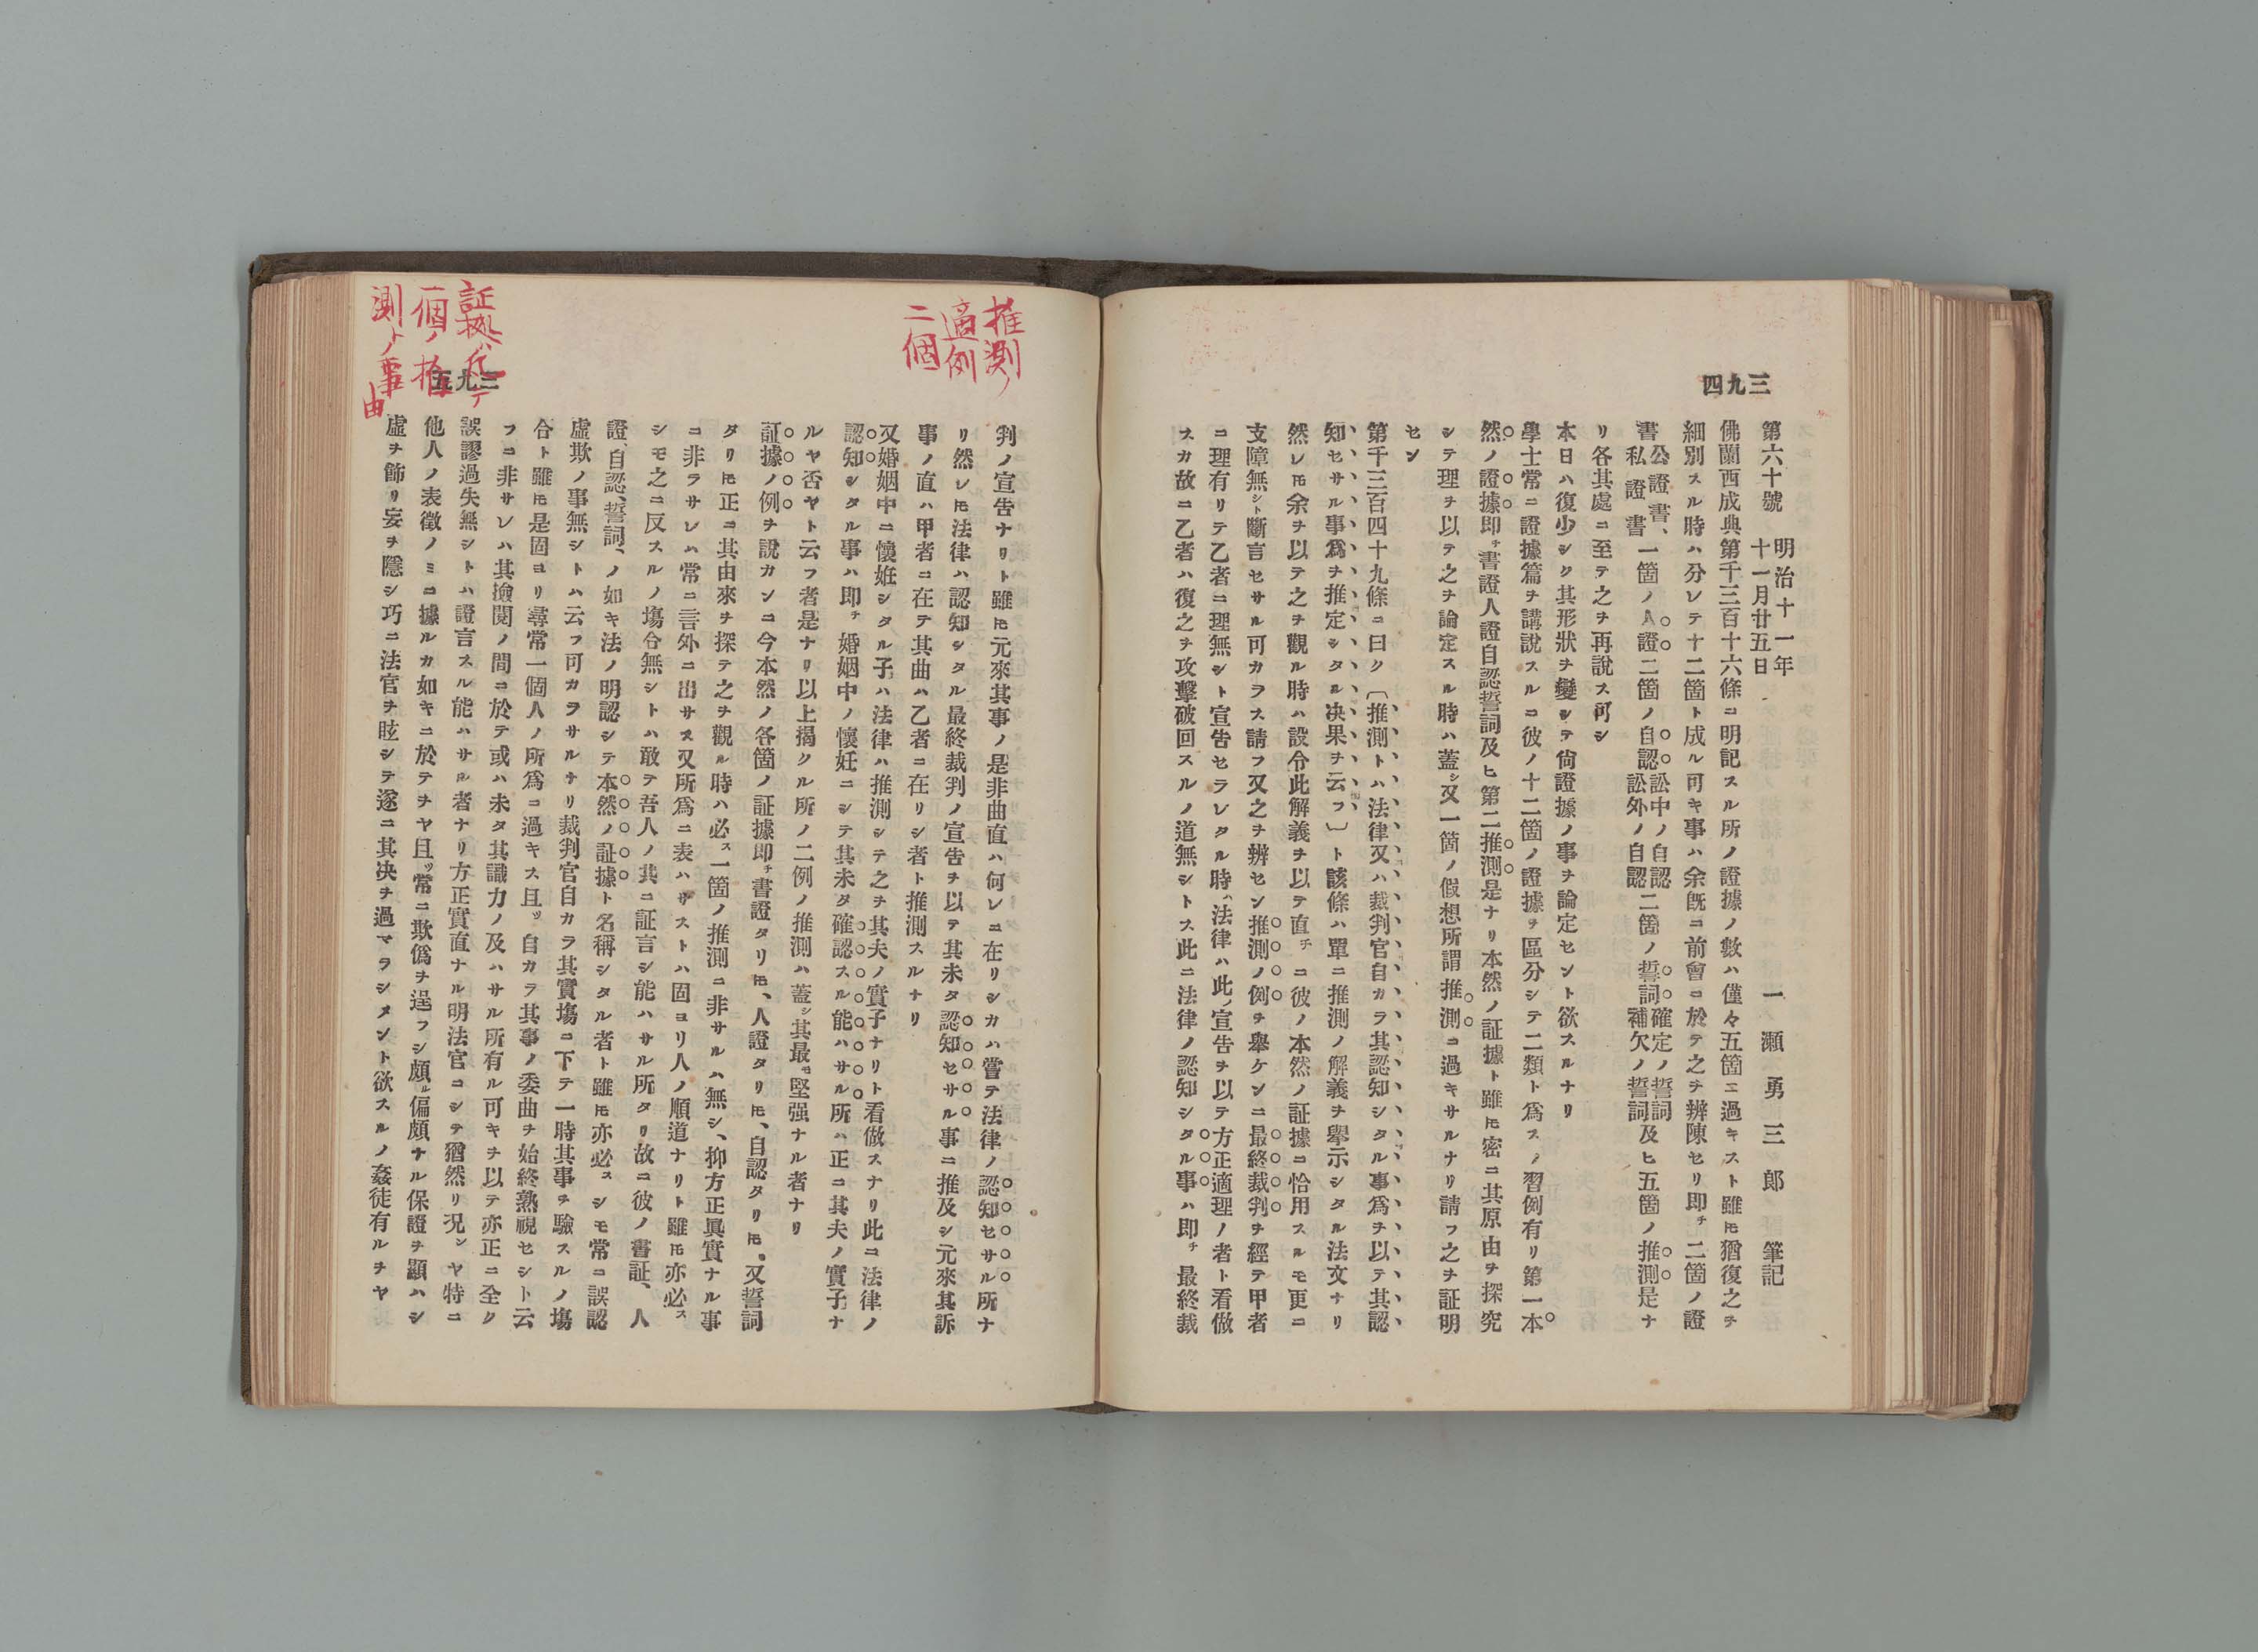 四九三
第六十號
明治十一年
十一月廿五日
一瀬勇三郎 筆記
佛蘭西成典第千三百十六條ニ明記スル所ノ證據ノ數ハ僅々五箇ニ過キスト雖𪜈猶復之ヲ
細別スル時ハ分レテ十二箇ト成ル可キ事ハ余既ニ前會ニ於テ之ヲ辨陳セリ即チ二箇ノ證
書公證書、私證書一箇ノ人證二箇ノ自認訟中ノ自認訟外ノ自認二箇ノ誓詞確定ノ誓詞補欠ノ誓詞及ヒ五箇ノ推測是ナ
リ各其處ニ至テ之ヲ再說ス可シ
本日ハ復少シク其形狀ヲ變シテ尙證據ノ事ヲ論定セント欲スルナリ
學士常ニ證據篇ヲ講說スルニ彼ノ十二箇ノ證據ヲ區分シテ二類ト爲スノ習例有リ第一本
然ノ證據即チ書證人證自認誓詞及ヒ第二推測是ナリ本然ノ証據ト雖𪜈密ニ其原由ヲ探究
シテ理ヲ以テ之ヲ論定スル時ハ蓋シ又一箇ノ假想所謂推測ニ過キサルナリ請フ之ヲ証明
セン
第千三百四十九條ニ曰ク〔推測トハ法律又ハ裁判官自カラ其認知シタル事爲ヲ以テ其認
知セサル事爲ヲ推定シタル決果ヲ云フ〕ト該條ハ單ニ推測ノ解義ヲ擧示シタル法文ナリ
然レ𪜈余ヲ以テ之ヲ觀ル時ハ設令此解義ヲ以テ直チニ彼ノ本然ノ証據ニ恰用スルモ更ニ
支障無シト斷言セサル可カラス請フ又之ヲ辨セン推測ノ例ヲ擧ケンニ最終裁判ヲ經テ甲者
ニ理有リテ乙者ニ理無シト宣告セラレタル時ハ法律ハ此ノ宣告ヲ以テ方正適理ノ者ト看做
スカ故ニ乙者ハ復之ヲ攻擊破回スルノ道無シトス此ニ法律ノ認知シタル事ハ即チ最終裁
推測ノ
適例
二個
証拠ハ凡テ
一個ノ推
測トノ事由
五九三
判ノ宣告ナリト雖𪜈元來其事ノ是非曲直ハ何レニ在リシカハ嘗テ法律ノ認知セサル所ナ
リ然レ𪜈法律ハ認知シタル最終裁判ノ宣告ヲ以テ其未タ認知セサル事ニ推及シ元來其訴
事ノ直ハ甲者ニ在テ其曲ハ乙者ニ在リシ者ト推測スルナリ
又婚姻中ニ懷妊シタル子ハ法律ハ推測シテ之ヲ其夫ノ實子ナリト看做スナリ此ニ法律ノ
認知シタル事ハ即チ婚姻中ノ懷妊ニシテ其未タ確認スル能ハサル所ハ正ニ其夫ノ實子ナ
ルヤ否ヤト云フ者是ナリ以上揭クル所ノ二例ノ推測ハ蓋シ其最モ堅强ナル者ナリ
証據ノ例ヲ說カンニ今本然ノ各箇ノ証據即チ書證タリ𪜈、人證タリ𪜈、自認タリ𪜈、又誓詞
タリ𪜈正ニ其由來ヲ探テ之ヲ觀ル時ハ必ス一箇ノ推測ニ非サルハ無シ、抑方正眞實ナル事
ニ非ラサレハ常ニ言外ニ出サス又所爲ニ表ハサストハ固ヨリ人ノ順道ナリト雖𪜈亦必ス
シモ之ニ反スルノ塲合無シトハ敢テ吾人ノ其ニ証言シ能ハサル所タリ故ニ彼ノ書証、人
證、自認、誓詞、ノ如キ法ノ明認シテ本然ノ証據ト名稱シタル者ト雖𪜈亦必スシモ常ニ誤認
虛欺ノ事無シトハ云フ可カラサルナリ裁判官自カラ其實塲ニ下テ一時其事ヲ驗スルノ塲
合ト雖𪜈是固ヨリ尋常一個人ノ所爲ニ過キス且ツ自カラ其事ノ委曲ヲ始終熟視セシト云
フニ非サレハ其撿閱ノ間ニ於テ或ハ未タ其識力ノ及ハサル所有ル可キヲ以テ亦正ニ全ク
誤謬過失無シトハ證言スル能ハサル者ナリ方正實直ナル明法官ニシテ猶然リ况ンヤ特ニ
他人ノ表徵ノミニ據ルカ如キニ於テヲヤ且ツ常ニ欺僞ヲ逞フシ頗ル偏頗ナル保證ヲ顯ハシ
虛ヲ飾リ妄ヲ隱シ巧ニ法官ヲ眩シテ遂ニ其決ヲ過マラシメント欲スルノ姦徒有ルヲヤ